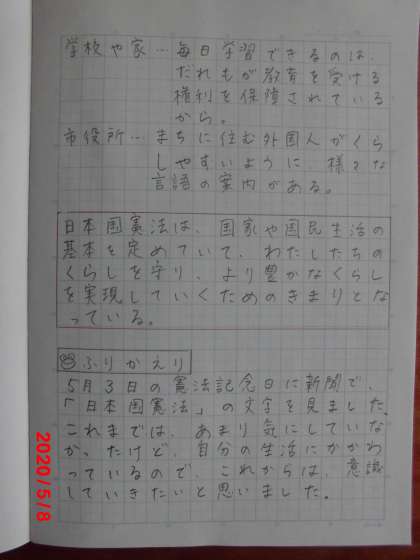 学校や家…毎日学習できるのは、
だれもが教育を受ける
権利を保障されている
から。
市役所…まちに住む外国人がくら
しやすいように、様々な
言語の案内がある。
日本国憲法は、国家や国民生活の
基本を定めていて、わたしたちの
くらしを守り、より豊かなくらし
を実現していくためのきまりとな
っている。
ふりかえり
5月3日の憲法記念日に新聞で、
「日本国憲法」の文字を見ました。
これまでは、あまり気にしていな
かったけど、自分の生活にかかわ
っているので、これからは、意識
していきたいと思いました。
2020/5/8